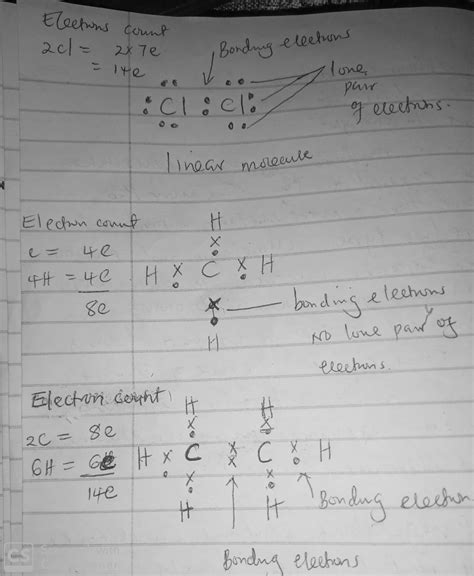 Electrons count
2Cl = 2x7e
= 14e
Bonding electrons
lone
pair
of electrons.
Cl Cl
linear molecule
Electron count
c = 4e
4H = 4e
8e
H
H C H
H
bonding electrons
No lone pair of
electrons.
Electron count
2C = 8e
6H = 6e
14e
H H
H C C H
H H
Bonding electron
Bonding electrons
CS